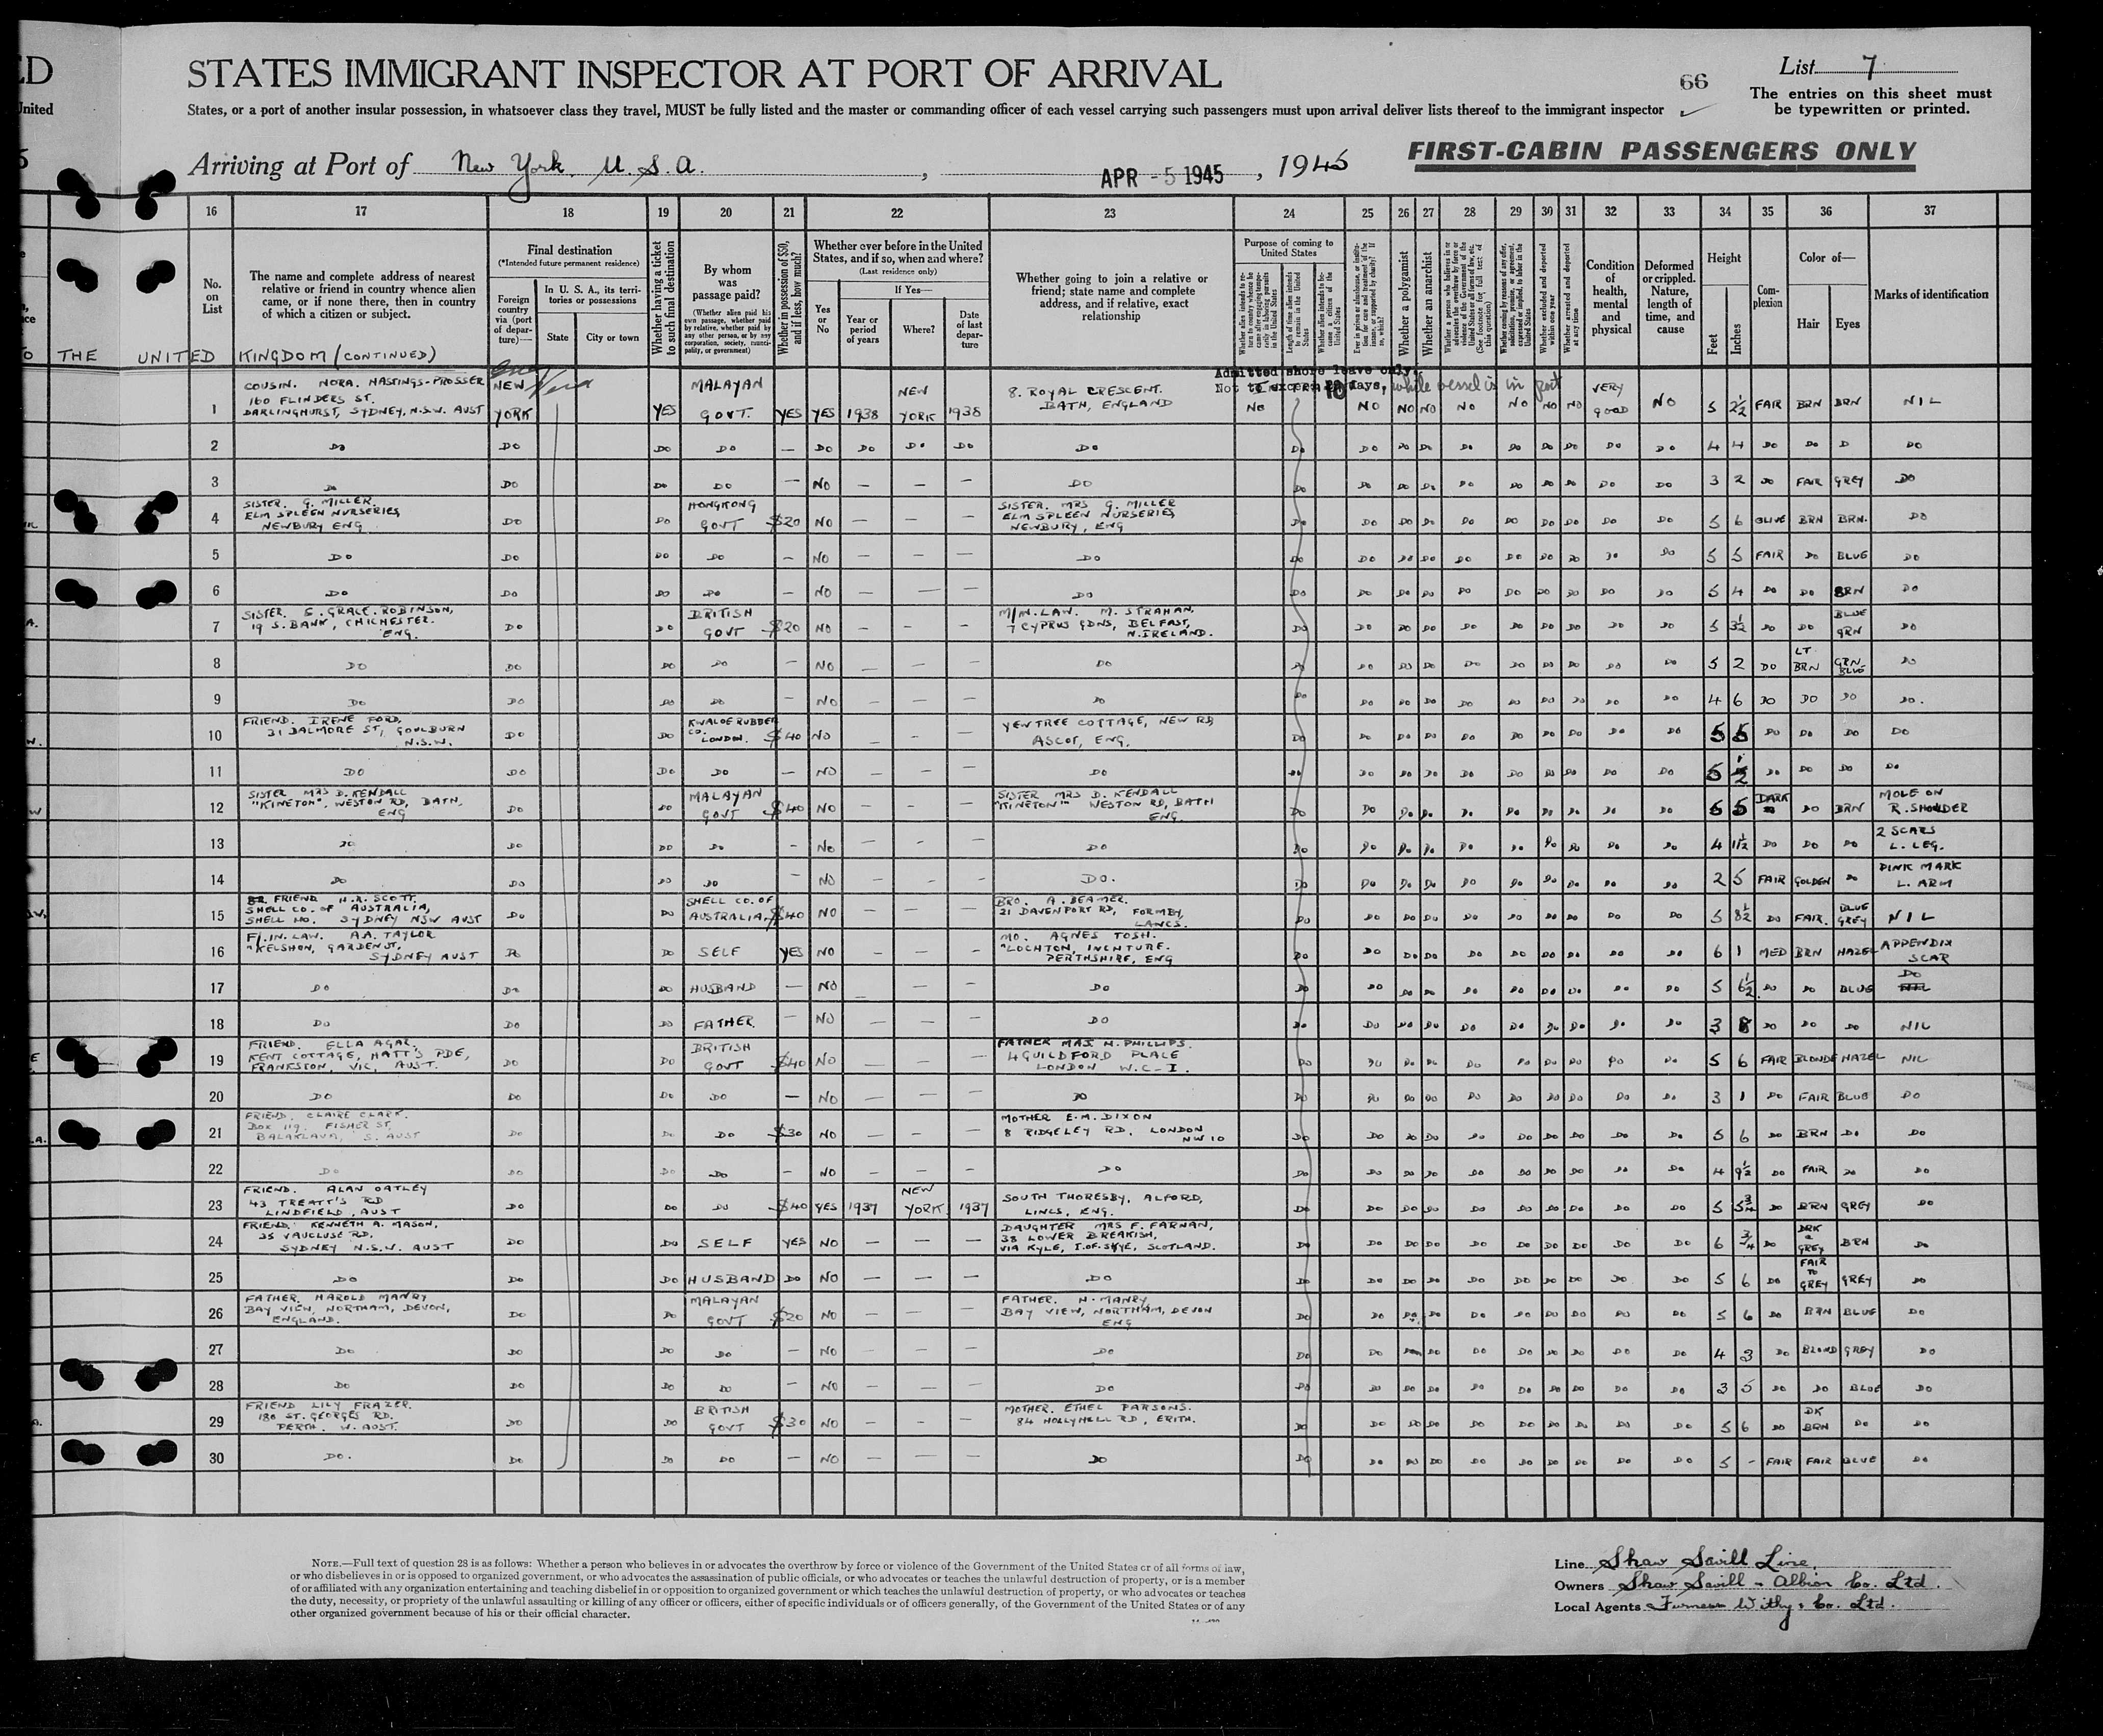 ED
STATES IMMIGRANT INSPECTOR AT PORT OF ARRIVAL
66
List 7
United
States, or a port of another insular possession, in whatsoever class they travel, MUST be fully listed and the master or commanding officer of each vessel carrying such passengers must upon arrival deliver lists thereof to the immigrant inspector
The entries on this sheet must
be typewritten or printed.
Arriving at Port of New York. U.S.A. , APR - 5 1945 , 1945
FIRST-CABIN PASSENGERS ONLY
16 17 18 19 20 21 22 23 24 25 26 27 28 29 30 31 32 33 34 35 36 37
No. on List
The name and complete address of nearest relative or friend in country whence alien came, or if none there, then in country of which a citizen or subject.
Final destination
(*Intended future permanent residence)
Foreign country via (port of departure)—
In U. S. A., its territories or possessions
State
City or town
Whether having a ticket to such final destination
By whom was passage paid?
(Whether alien paid his own passage, whether paid by relative, whether paid by any other person, or by any corporation, society, municipality, or government)
Whether in possession of $50, and if less, how much?
Whether ever before in the United States, and if so, when and where?
(Last residence only)
Yes or No
If Yes—
Year or period of years
Where?
Date of last departure
Whether going to join a relative or friend; state name and complete address, and if relative, exact relationship
Purpose of coming to United States
Whether a polygamist
Whether an anarchist
Whether arrested and deported within one year
Whether arrested and deported at any time
Condition of health, mental and physical
Deformed or crippled. Nature, length of time, and cause
Height
Feet
Inches
Complexion
Color of—
Hair
Eyes
Marks of identification
TO THE UNITED KINGDOM (CONTINUED)
Admitted shore leave only.
Not to exceed 10 days, while vessel is in port
1 COUSIN. NORA. HASTINGS-PROSSER 160 FLINDERS ST. DARLINGHURST, SYDNEY, N.S.W. AUST NEW YORK YES MALAYAN GOVT. YES YES 1938 NEW YORK 1938 8. ROYAL CRESCENT. BATH, ENGLAND NO NO NO NO NO NO NO NO VERY GOOD NO 5 2½ FAIR BRN BRN NIL
2 DO DO DO DO — DO DO DO DO DO DO DO DO DO DO DO DO DO DO DO 4 4 DO DO D DO
3 DO DO DO DO — NO — — — DO DO DO DO DO DO DO DO DO DO DO 3 2 DO FAIR GREY DO
4 SISTER. G. MILLER. ELM SPLEEN NURSERIES, NEWBURY ENG DO DO HONGKONG GOVT $20 NO — — — SISTER. MRS G. MILLER ELM SPLEEN NURSERIES, NEWBURY, ENG DO DO DO DO DO DO DO DO DO DO 5 6 OLIVE BRN BRN. DO
5 DO DO DO DO — NO — — — DO DO DO DO DO DO DO DO DO DO DO 5 5 FAIR DO BLUE DO
6 DO DO DO DO — NO — — — DO DO DO DO DO DO DO DO DO DO DO 5 4 DO DO BRN DO
7 SISTER. E. GRACE. ROBINSON, 19 S. BANK, CHICHESTER. ENG. DO DO BRITISH GOVT $20 NO — — — M/IN.LAW. M. STRAHAN, 7 CYPRUS GDNS, BELFAST, N.IRELAND. DO DO DO DO DO DO DO DO DO DO 5 3½ DO DO BLUE GRN DO
8 DO DO DO DO — NO — — — DO DO DO DO DO DO DO DO DO DO DO 5 2 DO LT BRN GRN BLUE DO
9 DO DO DO DO — NO — — — DO DO DO DO DO DO DO DO DO DO DO 4 6 DO DO DO DO.
10 FRIEND. IRENE FORD, 31 DALMORE ST, GOULBURN N.S.W. DO DO KWALOE RUBBER CO. LONDON. $40 NO — — — YEWTREE COTTAGE, NEW RD, ASCOT, ENG. DO DO DO DO DO DO DO DO DO DO 5 5 DO DO DO DO
11 DO DO DO DO — NO — — — DO DO DO DO DO DO DO DO DO DO DO 5 ½ DO DO DO DO
12 SISTER MRS D. KENDALL "KINETON", WESTON RD, BATH. ENG DO DO MALAYAN GOVT $40 NO — — — SISTER MRS D. KENDALL "KINETON" WESTON RD, BATH ENG. DO DO DO DO DO DO DO DO DO DO 5 5 DARK DO BRN MOLE ON R. SHOULDER
13 DO DO DO DO — NO — — — DO DO DO DO DO DO DO DO DO DO DO 4 11½ DO DO DO 2 SCARS L. LEG.
14 DO DO DO DO — NO — — — DO. DO DO DO DO DO DO DO DO DO DO 2 5 FAIR GOLDEN DO PINK MARK L. ARM
15 FRIEND H.R. SCOTT. SHELL CO. OF AUSTRALIA, SHELL HO. SYDNEY NSW AUST DO DO SHELL CO. OF AUSTRALIA, $40 NO — — — BRO. A. BEAMER. 21 DAVENPORT RD, FORMBY, LANCS. DO DO DO DO DO DO DO DO DO DO 5 8½ DO FAIR. BLUE GREY NIL
16 F/.IN.LAW. A.A. TAYLOR "KELSHON, GARDEN ST, SYDNEY AUST DO DO SELF YES NO — — — MO. AGNES TOSH. "LOCHTON, INCHTURE. PERTHSHIRE, ENG DO DO DO DO DO DO DO DO DO DO 6 1 MED BRN HAZEL APPENDIX SCAR
17 DO DO DO HUSBAND — NO — — — DO DO DO DO DO DO DO DO DO DO DO 5 6½ DO DO BLUE DO
18 DO DO DO FATHER. — NO — — — DO DO DO DO DO DO DO DO DO DO DO 3 8 DO DO DO NIL
19 FRIEND. ELLA AGAR. KENT COTTAGE, HATT'S PDE, FRANKSTON, VIC, AUST. DO DO BRITISH GOVT $40 NO — — — FATHER MAJ H. PHILLIPS. 4 GUILDFORD PLACE LONDON W.C-I. DO DO DO DO DO DO DO DO DO DO 5 6 FAIR BLONDE HAZEL NIL
20 DO DO DO DO — NO — — — DO DO DO DO DO DO DO DO DO DO DO 3 1 DO FAIR BLUE DO
21 FRIEND. CLAIRE CLARK. BOX 119. FISHER ST, BALAKLAVA, S. AUST DO DO DO $30 NO — — — MOTHER E.M. DIXON 8 RIDGELEY RD, LONDON NW 10 DO DO DO DO DO DO DO DO DO DO 5 6 DO BRN DO DO
22 DO DO DO DO — NO — — — DO DO DO DO DO DO DO DO DO DO DO 4 9½ DO FAIR DO DO
23 FRIEND. ALAN OATLEY 43 TREATT'S RD LINDFIELD, AUST DO DO DO $40 YES 1937 NEW YORK 1937 SOUTH THORESBY, ALFORD, LINCS, ENG. DO DO DO DO DO DO DO DO DO DO 5 5¾ DO BRN GREY DO
24 FRIEND. KENNETH A. MASON, 35 VAUCLUSE RD, SYDNEY N.S.W. AUST DO DO SELF YES NO — — — DAUGHTER MRS F. FARNAN, 38 LOWER BREAKISH, VIA KYLE, I.OF.SKYE, SCOTLAND. DO DO DO DO DO DO DO DO DO DO 6 ¾ DO DRK GREY BRN DO
25 DO DO DO HUSBAND DO NO — — — DO DO DO DO DO DO DO DO DO DO DO 5 6 DO FAIR TO GREY GREY DO
26 FATHER. HAROLD MANRY BAY VIEW, NORTHAM, DEVON, ENGLAND. DO DO MALAYAN GOVT $20 NO — — — FATHER. H. MANRY BAY VIEW, NORTHAM, DEVON ENG DO DO DO DO DO DO DO DO DO DO 5 6 DO BRN BLUE DO
27 DO DO DO DO — NO — — — DO DO DO DO DO DO DO DO DO DO DO 4 3 DO BLOND GREY DO
28 DO DO DO DO — NO — — — DO DO DO DO DO DO DO DO DO DO DO 3 5 DO DO BLUE DO
29 FRIEND LILY FRAZER. 180 ST. GEORGES RD. PERTH. W. AUST. DO DO BRITISH GOVT $30 NO — — — MOTHER. ETHEL PARSONS. 84 HOLLYHILL RD, ERITH. DO DO DO DO DO DO DO DO DO DO 5 6 DO DK BRN DO DO
30 DO. DO DO DO — NO — — — DO DO DO DO DO DO DO DO DO DO DO 5 - FAIR FAIR BLUE DO
NOTE.—Full text of question 28 is as follows: Whether a person who believes in or advocates the overthrow by force or violence of the Government of the United States or of all forms of law,
or who disbelieves in or is opposed to organized government, or who advocates the assassination of public officials, or who advocates or teaches the unlawful destruction of property, or is a member
of or affiliated with any organization entertaining and teaching disbelief in or opposition to organized government or which teaches the unlawful destruction of property, or who advocates or teaches
the duty, necessity, or propriety of the unlawful assaulting or killing of any officer or officers, either of specific individuals or of officers generally, of the Government of the United States or of any
other organized government because of his or their official character.
Line Shaw Savill Line.
Owners Shaw Savill - Albion Co. Ltd.
Local Agents Furness Withy & Co. Ltd.